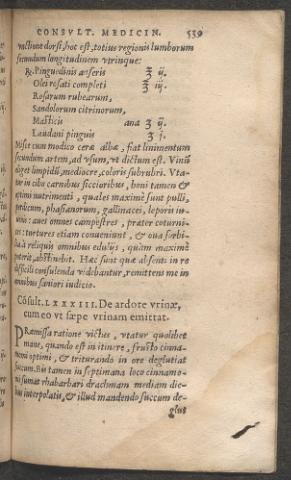 CONSVLT. MEDICIN. 539
vnctione dorsi, hoc est, totius regionis lumborum
secundum longitudinem vtrinque:
℞. Pinguedinis anseris ℥ ij.
Olei rosati completi ℥ iij.
Rosarum rubearum,
Sandolorum citrinorum,
Mastîcis ana ʒ ij.
Laudani pinguis ʒ j.
Misce cum modico ceræ albæ, fiat linimentum
secundum artem, ad vsum, vt dictum est. Vinū
eliget limpidū, mediocre, coloris subrubri. Vta-
tur in cibo carnibus siccioribus, boni tamen &
optimi nutrimenti, quales maximè sunt pulli,
perdicum, phasianorum, gallinacei, leporis iu-
nioris: aues omnes campestres, præter coturni-
ces: turtures etiam conueniunt, & oua sorbi-
lia: à reliquis omnibus eduliis, quàm maximè
poterit, abstinebit. Hæc sunt quæ absenti in re
difficili consulenda videbantur, remittens me in
omnibus saniori iudicio.
Cōsult. LXXXIII. De ardore vrinæ,
cum eo vt sæpe vrinam emittat.
PRæmissa ratione victus, vtatur quolibet
mane, quando est in itinere, frusto cinna-
momi optimi, & triturando in ore deglutiat
succum. Bis tamen in septimana loco cinnamo-
mi sumat rhabarbari drachmam mediam die-
bus interpolatis, & illud mandendo succum de-
glus